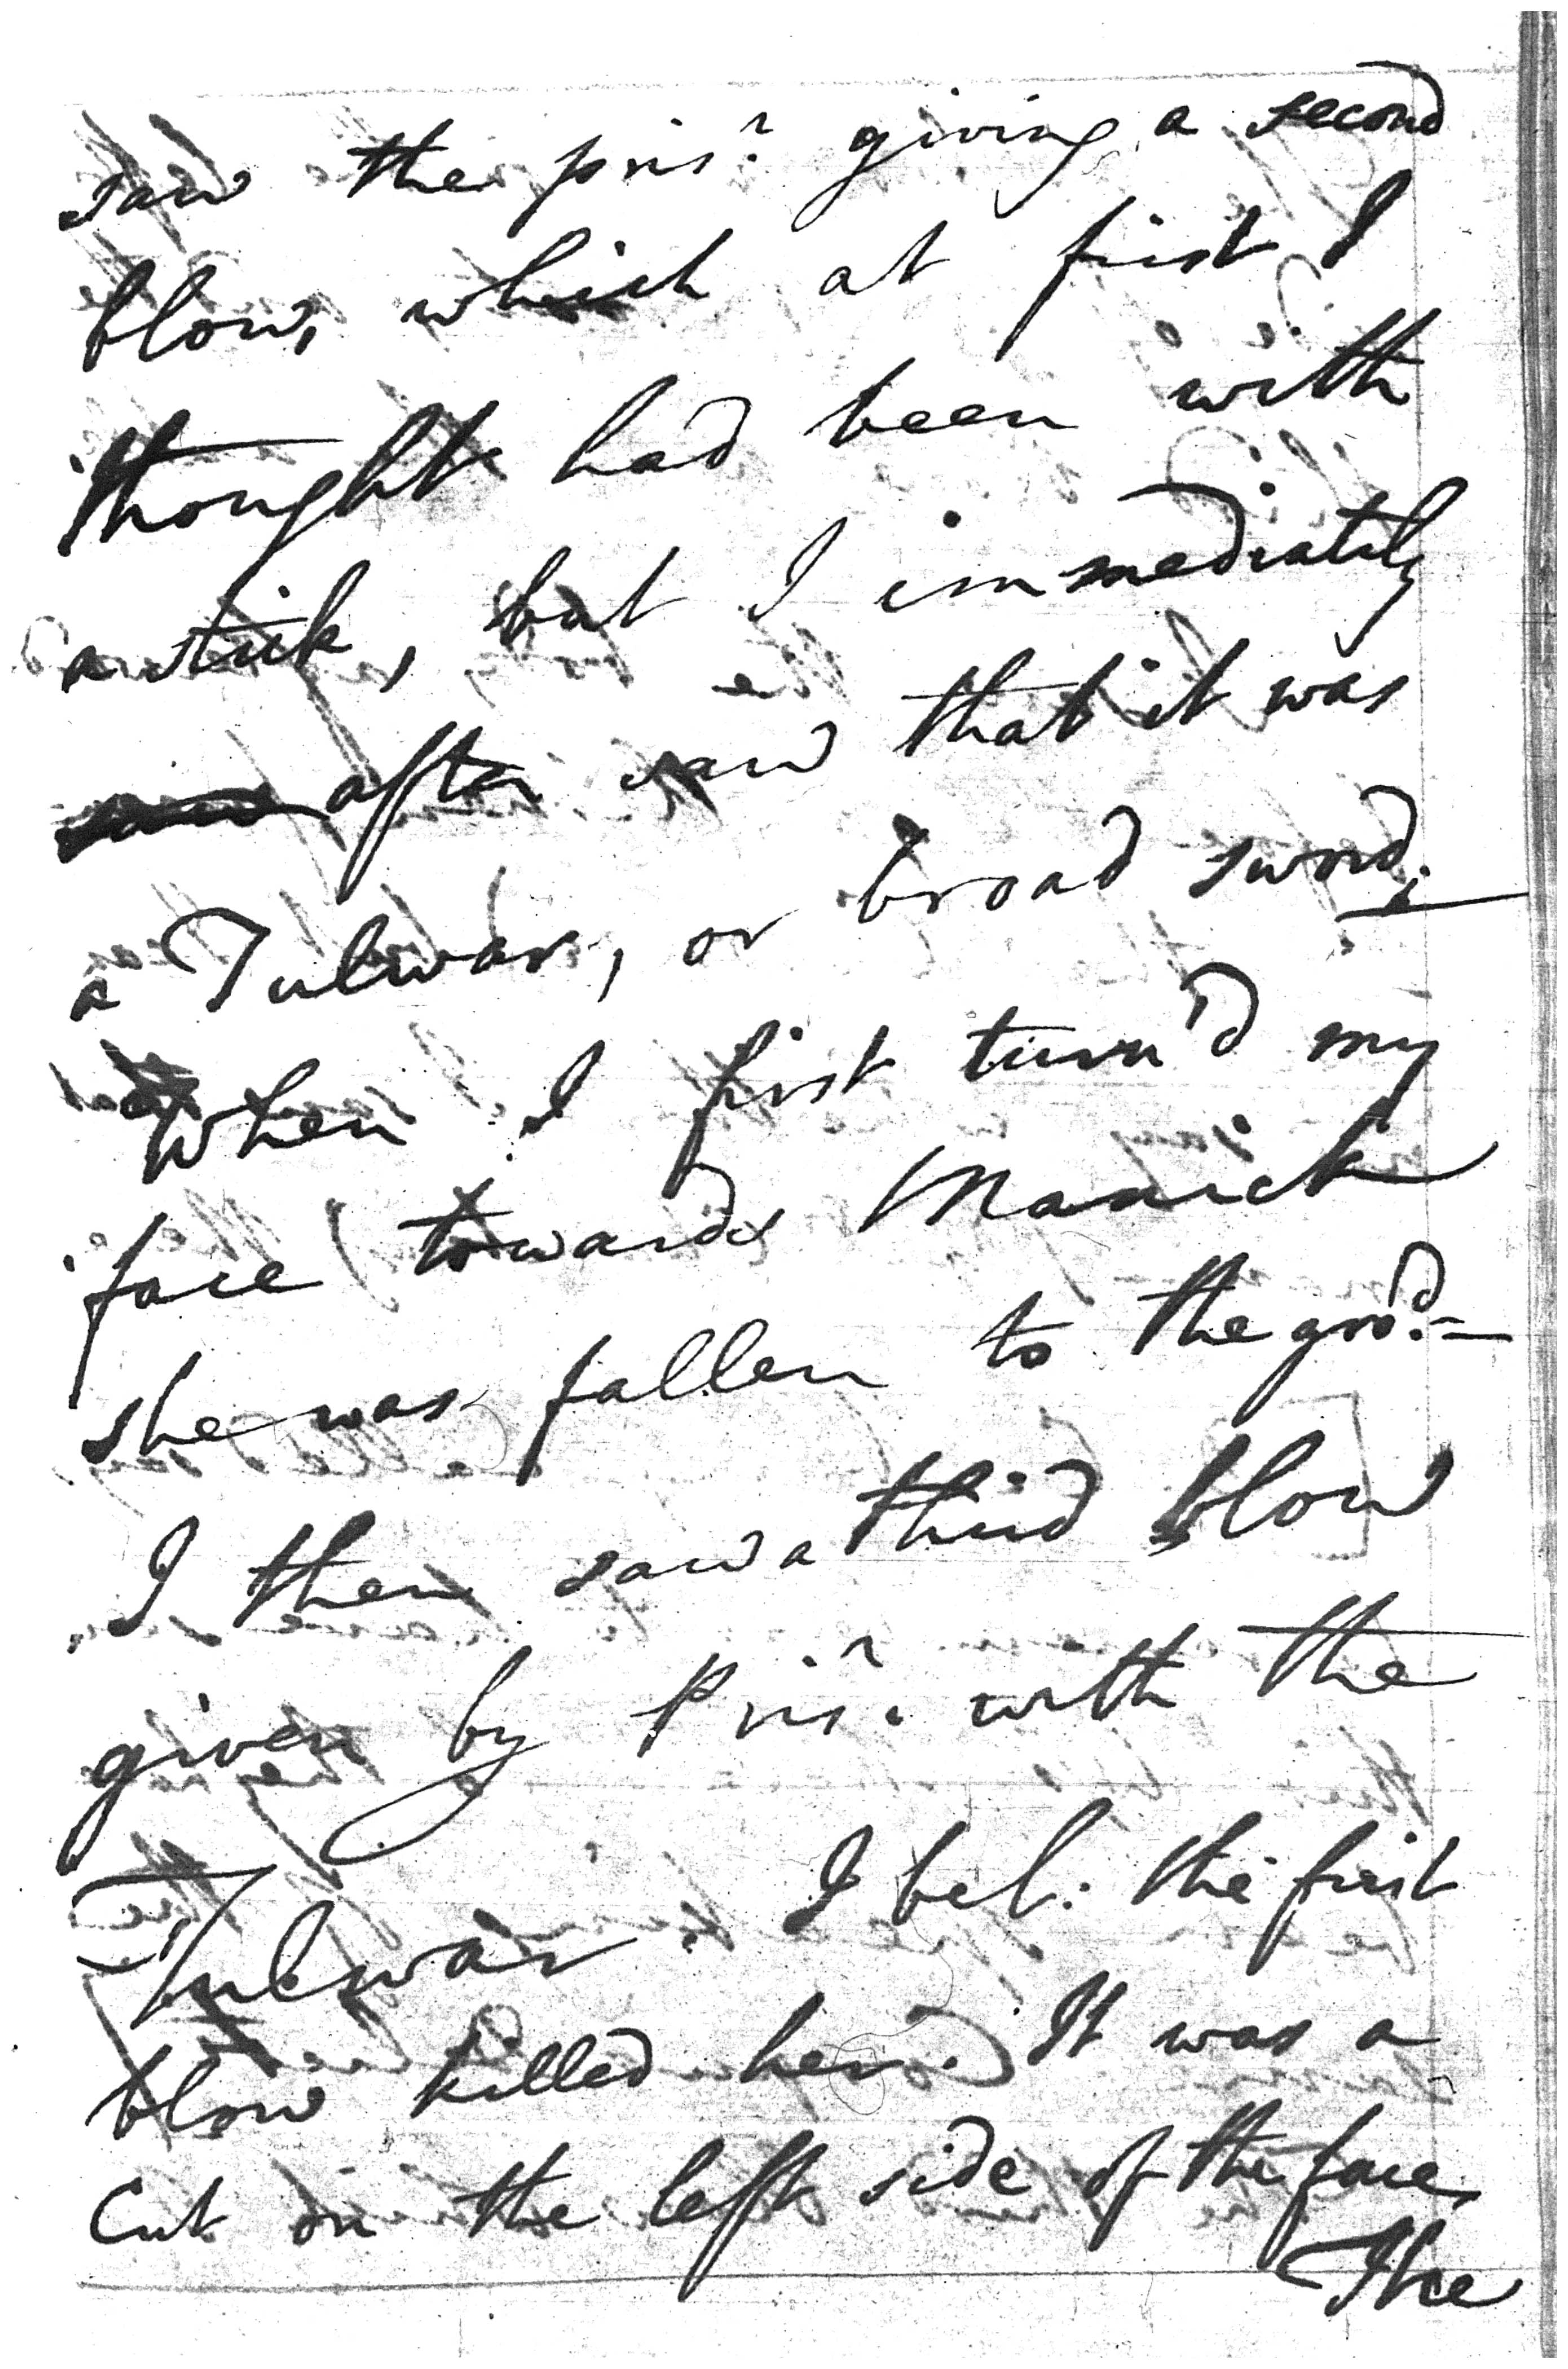 saw the pris.r giving a second
blow, which at first I
thought had been with
a stick, but I immediately
saw after saw that it was
a Tulwar, or broad sword;
When I first turn'd my
face towards Manick
she was fallen to the gro.d —
I then saw a third blow
given by Pris.r with the
Tulwar. I bel: the first
blow killed her. It was a
Cut on the left side of the face,
The